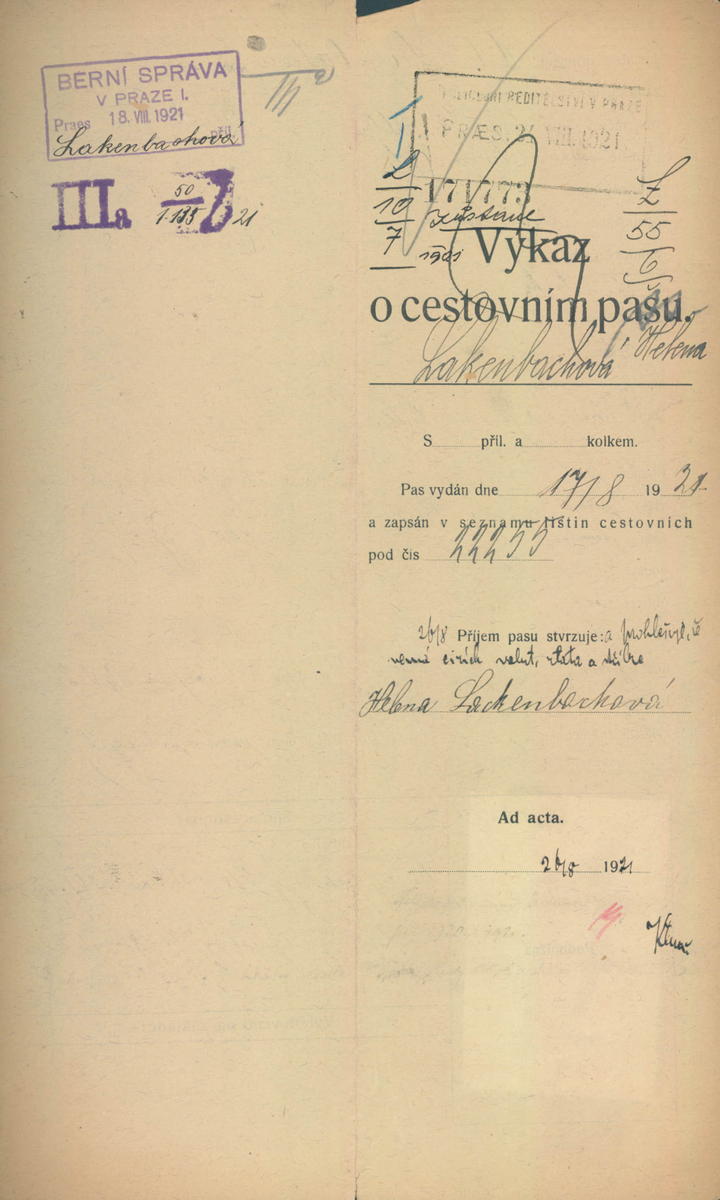 BERNÍ SPRÁVA
V PRAZE I.
Praes 18. VIII. 1921
příl.
Lakenbachová
IIIa 50 21
POLICEJNÍ ŘEDITELSTVÍ V PRAZE
PRÆS. 21 VIII. 1921
L
10
7
1921
Z
55
6
Výkaz
o cestovním pasu.
Lakenbachová Helena
S příl. a kolkem.
Pas vydán dne 17/8 1921
a zapsán v seznamu listin cestovních
pod čís 22255
26/8 Příjem pasu stvrzuje: a prohlašuje, že
nemá cizích valut, zlata a stříbra
Helena Lackenbachová
Ad acta.
26/8 1921